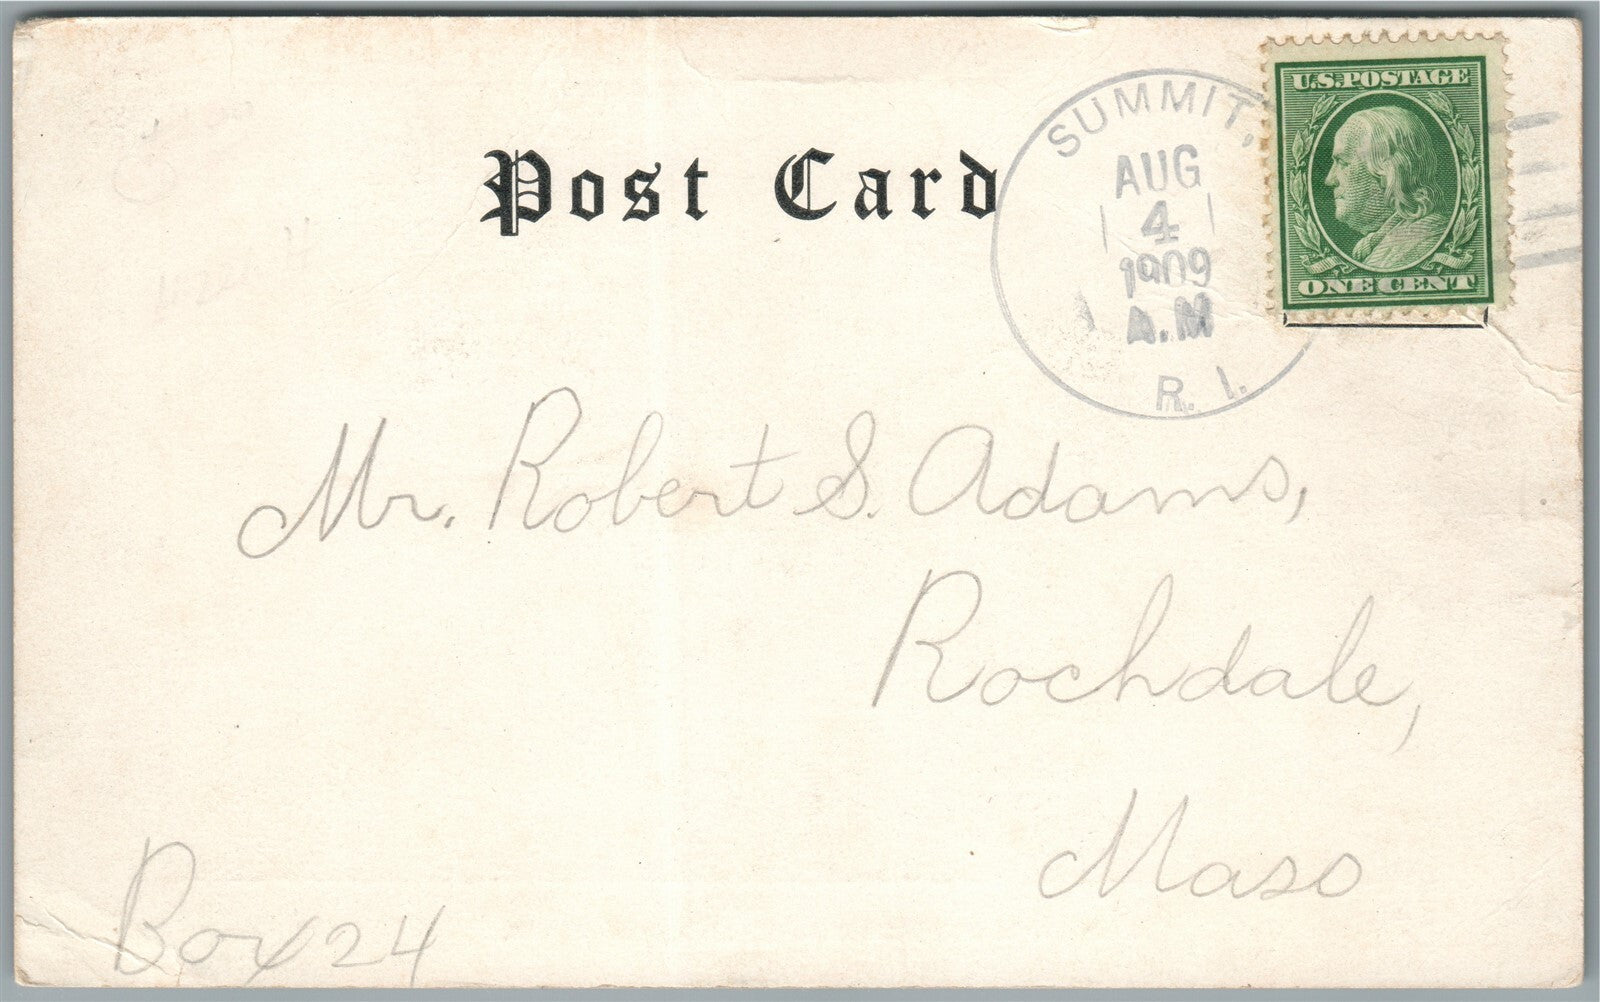 Post Card
SUMMIT,
AUG
4
1909
A.M
R. I.
U.S. POSTAGE
ONE CENT
Mr. Robert S. Adams,
Rochdale,
Mass
Box 24